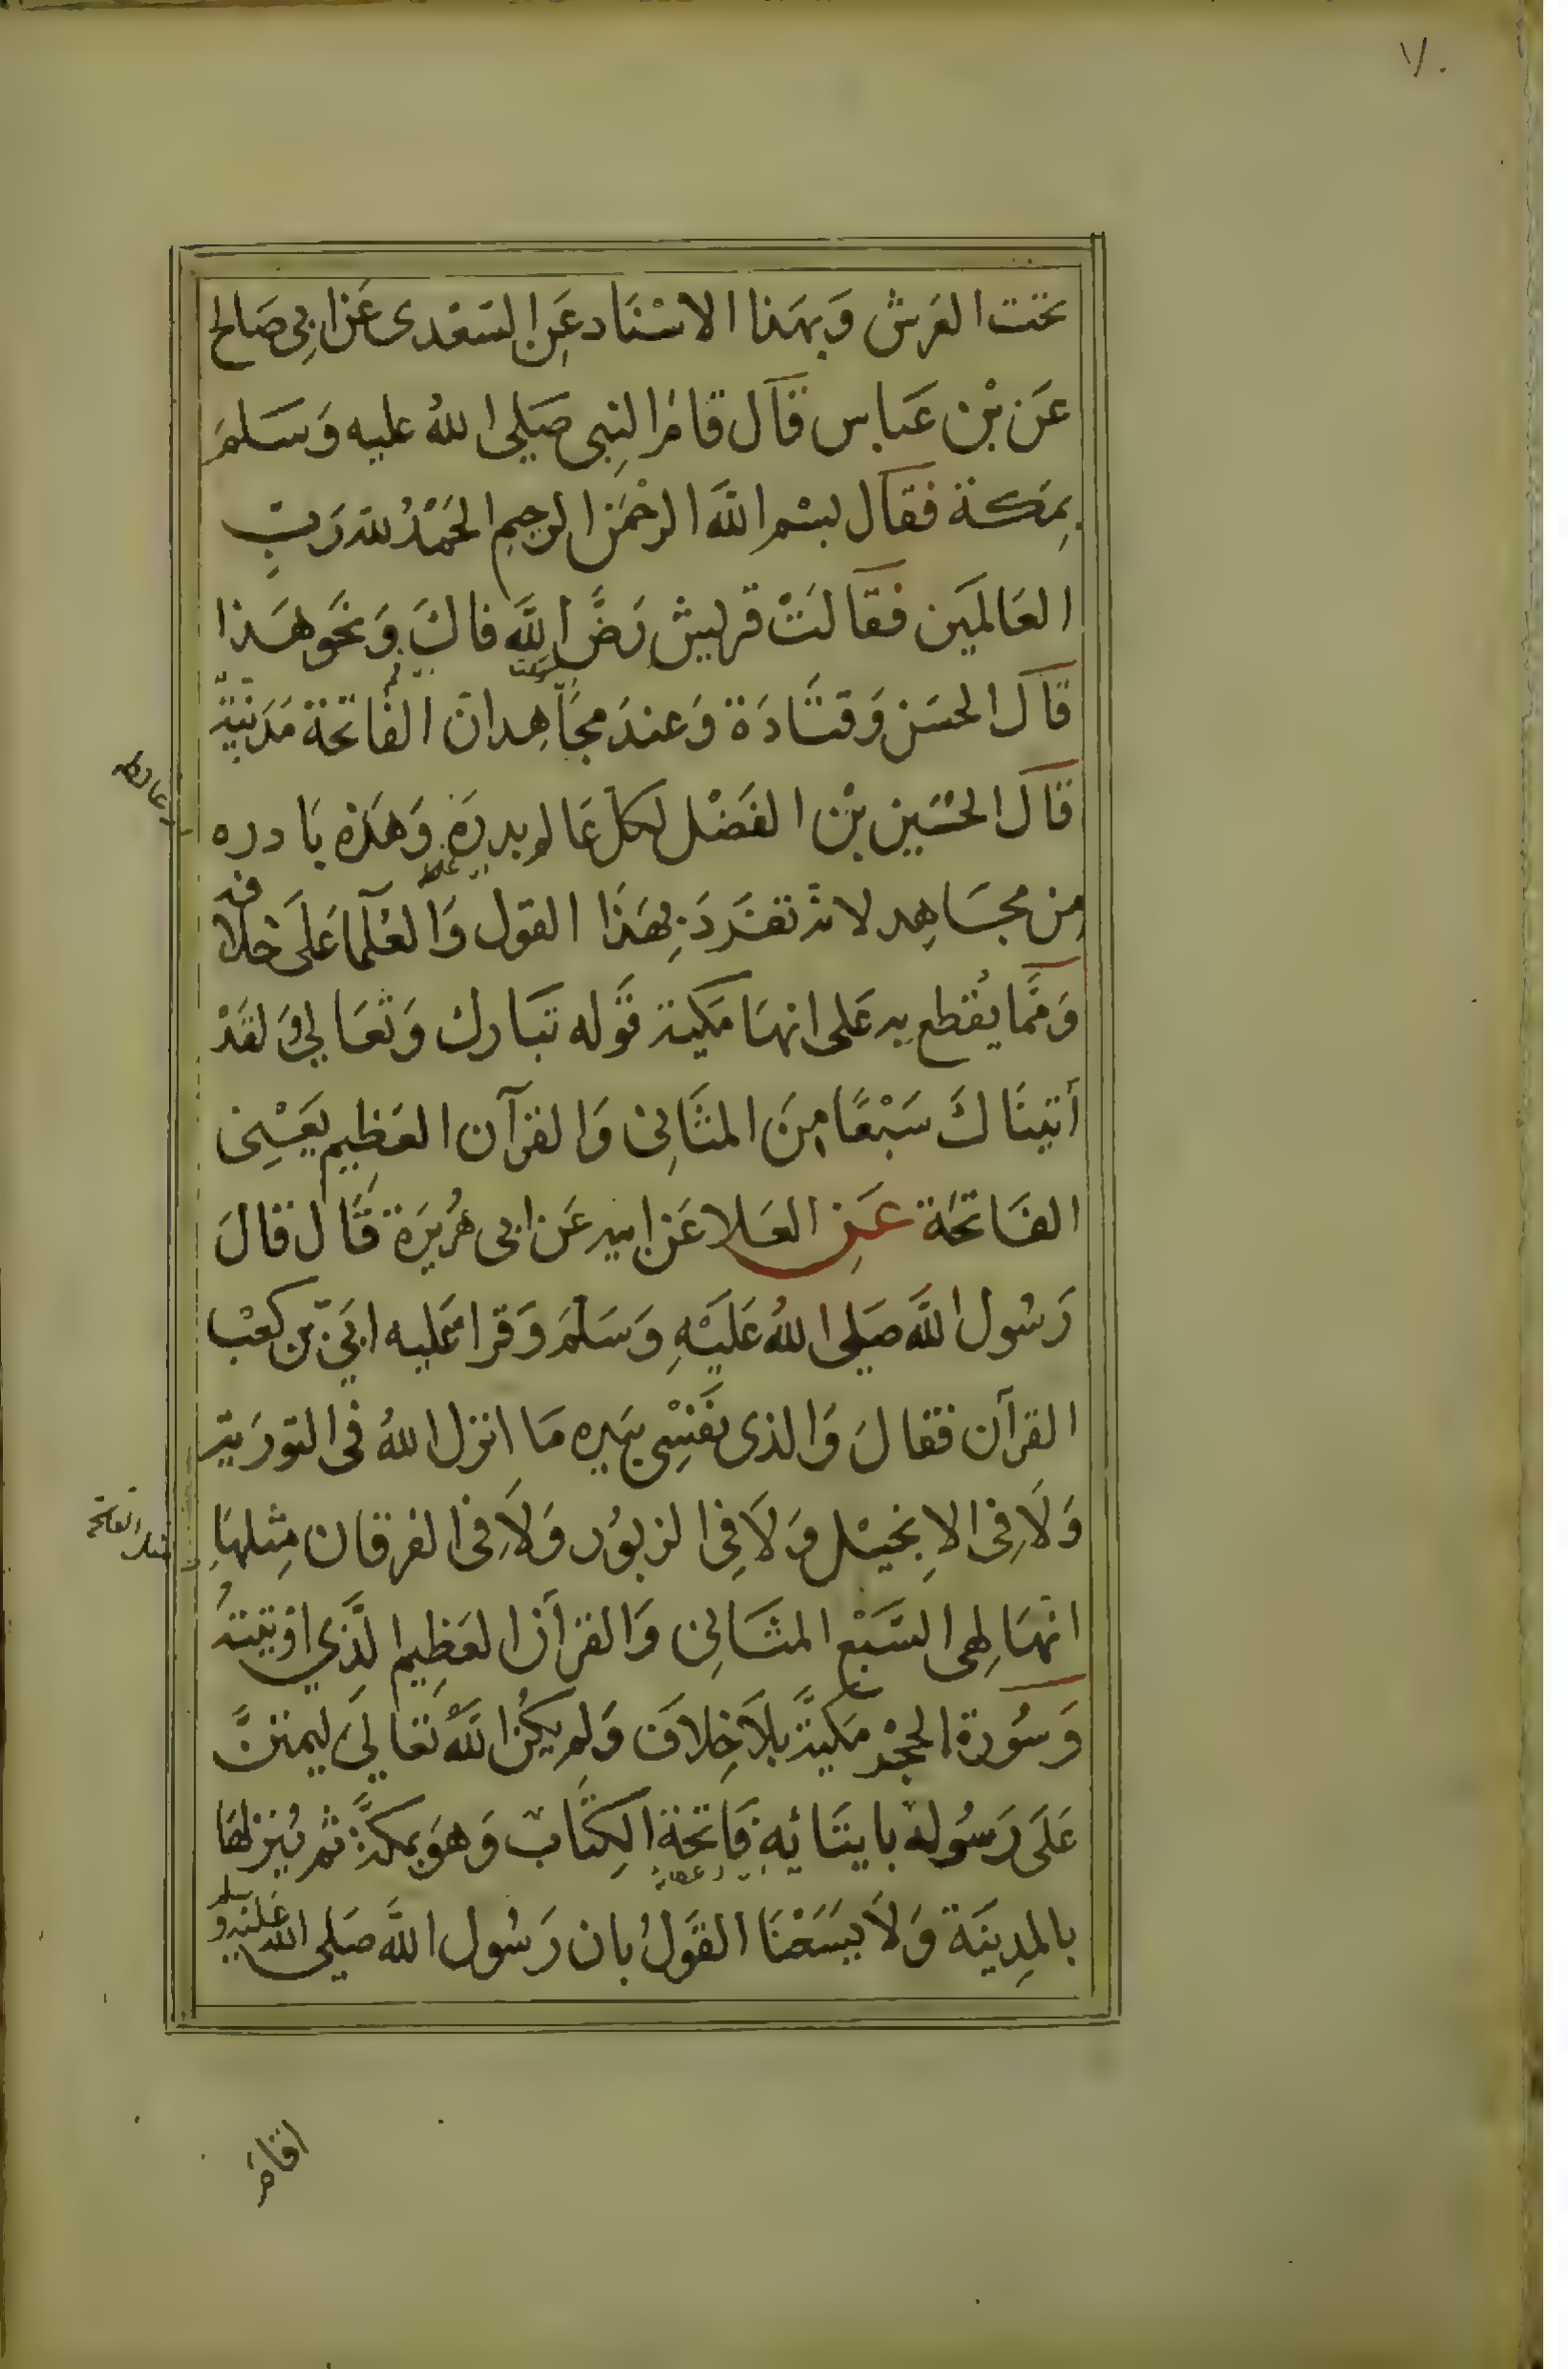 ٧٠
تحت العَرش وَبهَذا الاسْنَاد عَنِ السَعْدى عَن ابِى صَالح
عَن بْن عَباس قَال قامَ النِبى صَلي اللهُ عليه وَسَلمَ
بِمَكة فقال بسْم اللَّه الرحْمَن الرحِيم الحَمْدُ للهِ رَبِّ
العَالمَين فقَالَتْ قريش رَضَّ اللَّه فاكَ وَنَحَو هَذا
قَال الحسَن وَقتَادَة وَعندَ مجَاهِد ان الفَاتحة مَدَنيَّة
قَال الحُسَين بْن الفَضْل لكل عَالم بدرَة وَهَذه بَادره
مِن مجَاهِد لانه تفَرَدَ بِهَذَا القول وَالعُلَما عَلَى خلافه
وَممَّا يُقطع بِه عَلى انهَا مَكية قَوله تبَارك وَتعَالي وَلقَدْ
أتينَاكَ سَبْعًا مِنَ المثَانِى وَالقرآن العَظِيم يَعْنِى
الفَاتحَة عَنِ العَلا عَن ابيه عَن ابى هُريَرة قَال قالَ
رَسُول اللَّه صَلي اللهُ عَلَيْهِ وَسَلمَ وَقرا عَليه ابَيّ بن كعْب
القرآن فقالَ وَالذى نفَسِْى بيَده مَا انزل اللهُ فى التورَية
وَلَا فِى الاِنجيل وَلَا فِى الزبوُر وَلَا فِى الفرقان مِثلهَا
انهَا لهِى السَّبْع المثَانِى وَالقرآن العَظِيم الَّذِي اوتيتهُ
وَسُورة الحجْر مَكيَّة بلَا خِلاف وَلمِ يَكُن اللَّهُ تعَالىَ ليمتنَّ
عَلَى رَسُوله بايتَائهِ فَاتحَة الكِتَاب وَهوَ بمَكة ثم يُنزلهَا
بالمدِينَة وَلَا يسَعْنَا القَولُ بان رَسُول اللَّه صَلى الله عَليْه وسلم
اقامَ